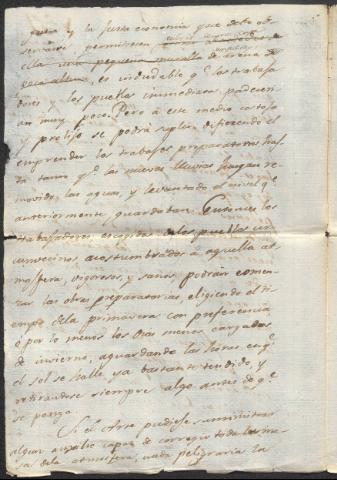 y la justa economia que debe ob
servarse permitiesen
ella una pequeña muralla de arena de
poca altura, es indudable q.e los trabaja
dores y los pueblos inmediatos padeceri
an muy poco. Pero à este medio costoso
y prolijo se podrà suplir difiriendo el
emprender los trabajos preparatorios has
ta tanto q.e las nuevas lluvias hayan re
movido las aguas, y levantado al nivel q.e
anteriormente guardaban. Entonces los
trabajadores escogidos en los pueblos cir
cunvecinos, acostumbrados à aquella at
mosfera, vigorosos, y sanos, podrán comen
zar las obras preparatorias, eligiendo el ti
empo dela primavera con preferencia
ò por lo menos los dias menos cargados
de invierno, aguardando las horas en q.e
el sol se halle ya bastante tendido, y
retirandose siempre algo antes de q.e
se ponga.
Si el Arte pudiese suministrar
algun auxilio capaz de corregir toda la ma
sa dela atmosfera, nada peligraria la